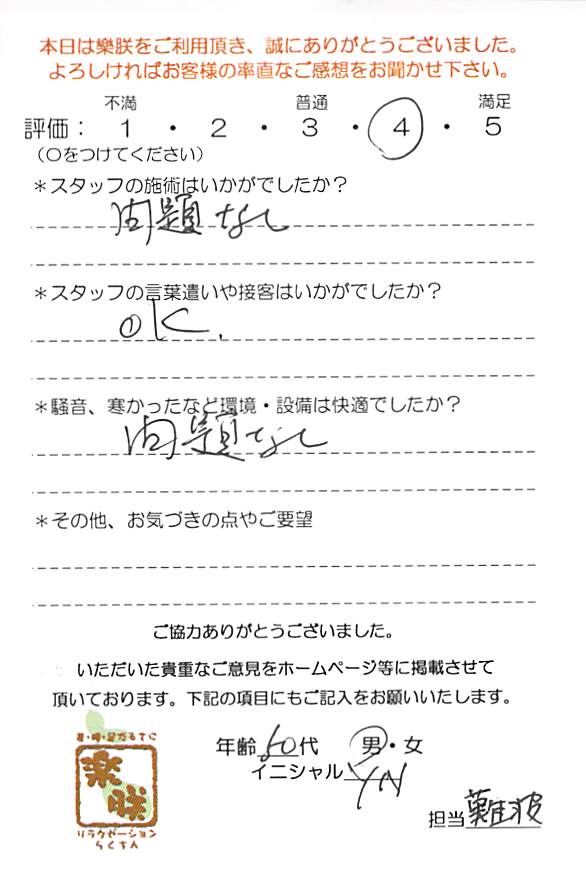 本日は樂朕をご利用頂き、誠にありがとうございました。
よろしければお客様の率直なご感想をお聞かせ下さい。
不満 普通 満足
評価： 1 ・ 2 ・ 3 ・ 4 ・ 5
（○をつけてください）
＊スタッフの施術はいかがでしたか？
問題なし
＊スタッフの言葉遣いや接客はいかがでしたか？
OK.
＊騒音、寒かったなど環境・設備は快適でしたか？
問題なし
＊その他、お気づきの点やご要望
ご協力ありがとうございました。
いただいた貴重なご意見をホームページ等に掲載させて
頂いております。下記の項目にもご記入をお願いいたします。
年齢 50代 男・女
イニシャル YN
担当 難波
楽
朕
リラクゼーション
らくちん